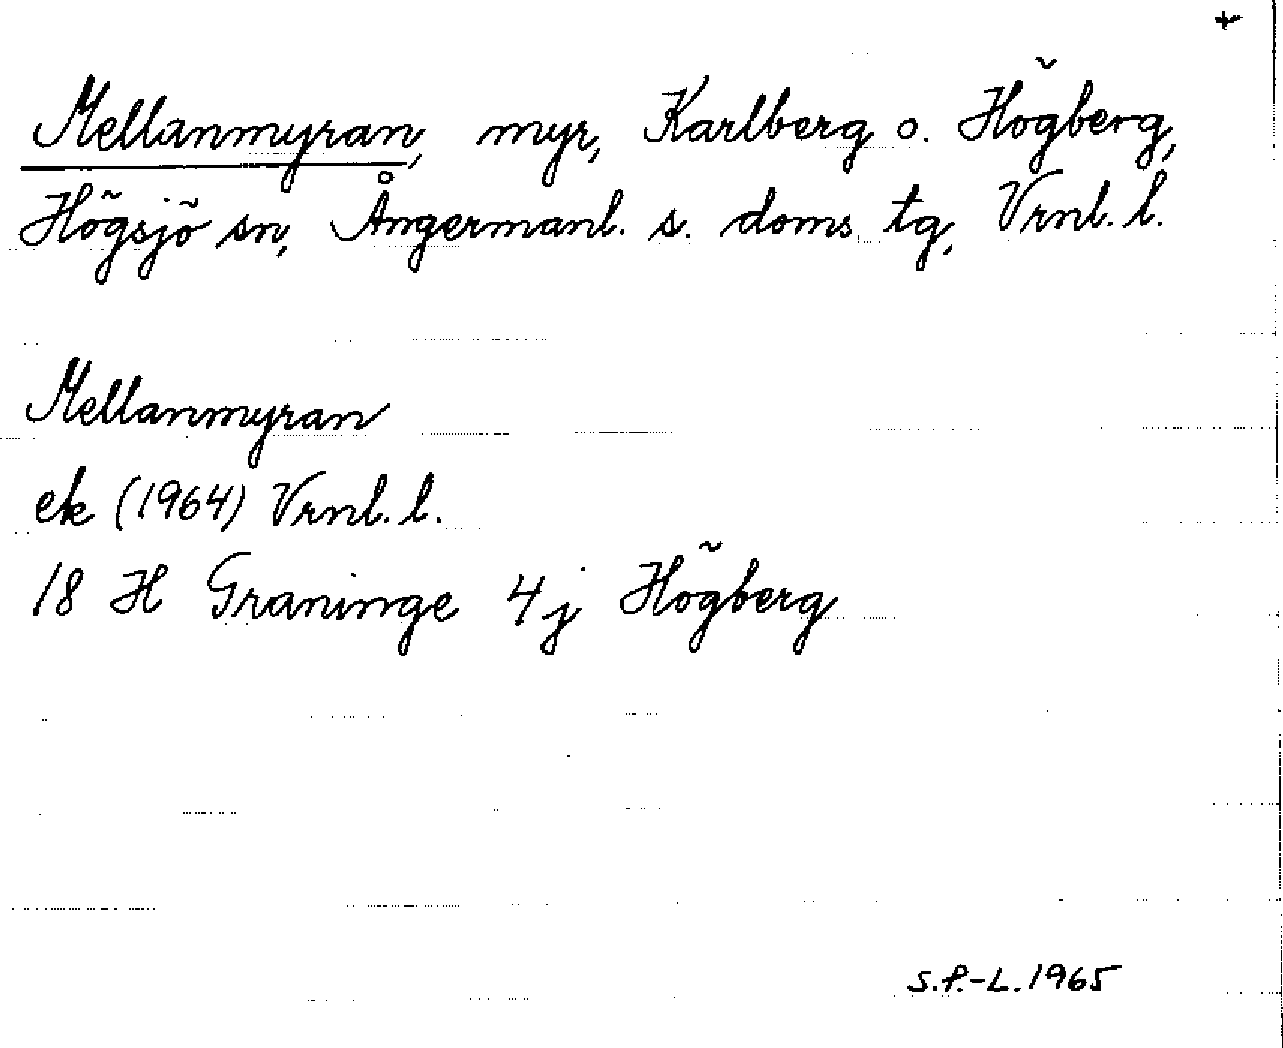 +
Mellanmyran, myr, Karlberg o. Högberg,
Högsjö sn, Ångermanl. s. doms. tg, Vrnl. l.
Mellanmyran
ek (1964) Vrnl. l.
18 H Graninge 4j Högberg
S.P.-L. 1965